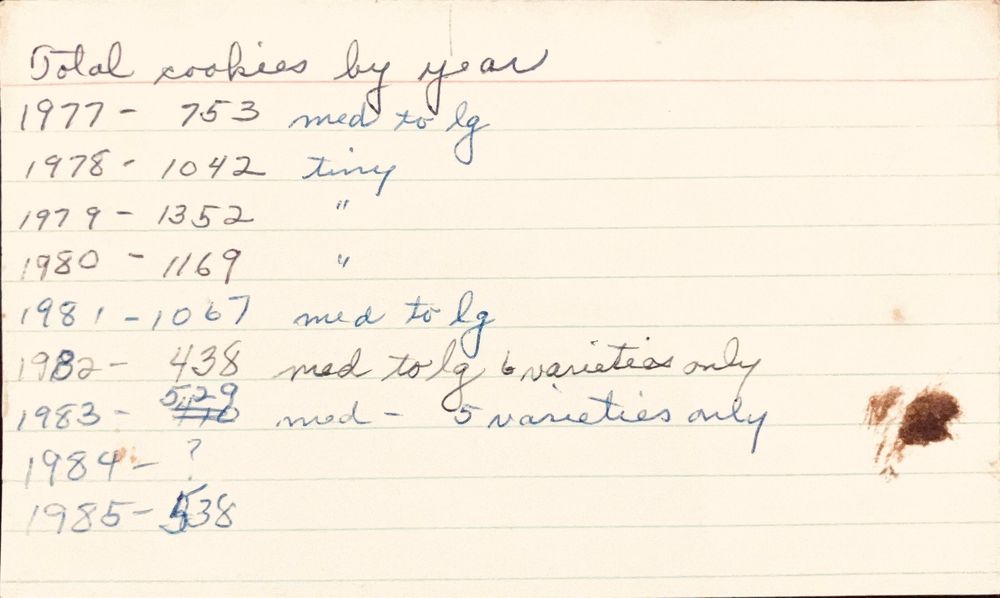 Total cookies by year
1977 - 753 med to lg
1978 - 1042 tiny
1979 - 1352 "
1980 - 1169 "
1981 - 1067 med to lg
1982 - 438 med to lg 6 varieties only
1983 - 529 med - 5 varieties only
1984 - ?
1985 - 538